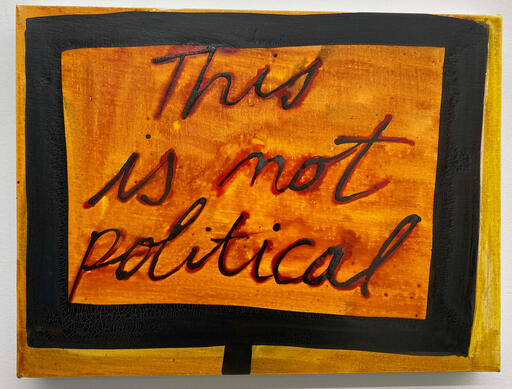 This
is not
political